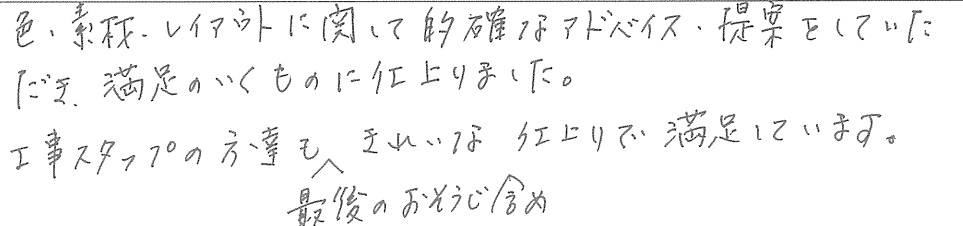 色・素材・レイアウトに関して的確なアドバイス・提案をしていた
だき、満足のいくものに仕上りました。
工事スタップの方達も きれいな 仕上りで 満足しています。
最後のおそうじ含め